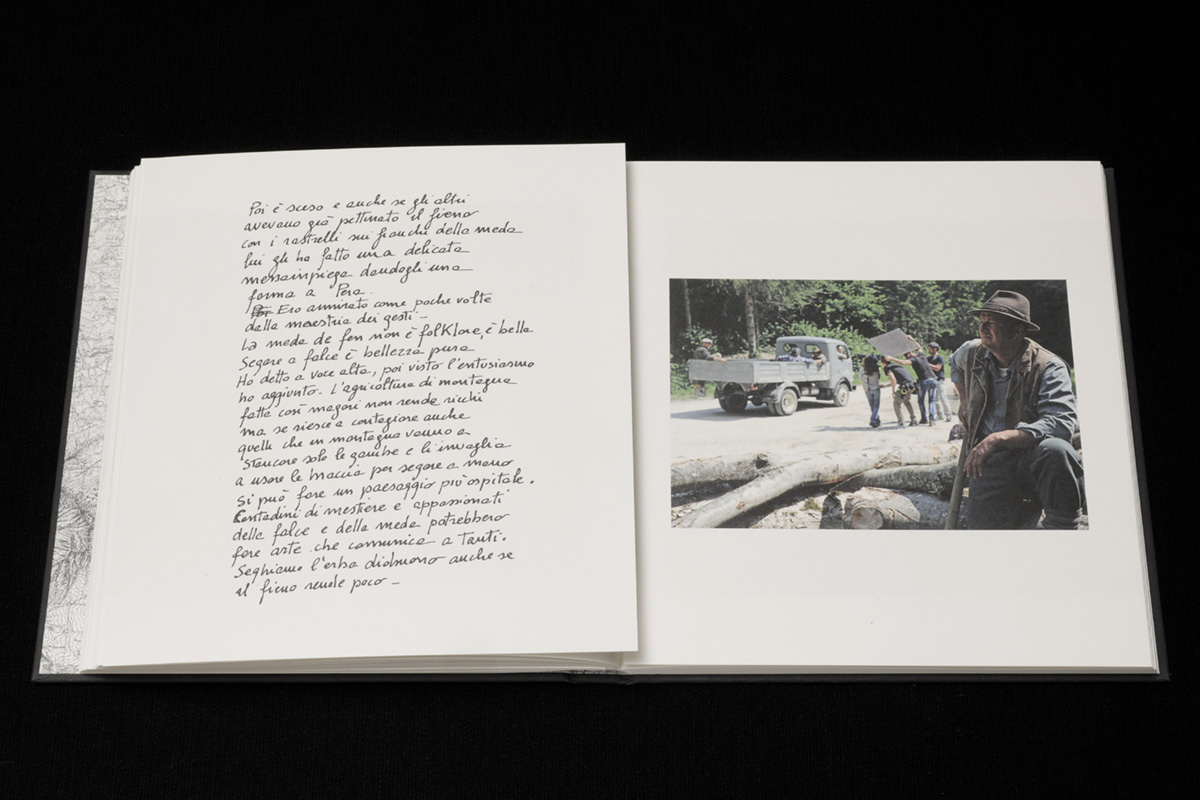 Poi è sceso e anche se gli altri
avevano già pettinato il fieno
con i rastrelli sui fianchi della meda
lui gli ha fatto una delicata
messainpiega dandogli una
forma a Pera.
Ero ammirato come poche volte
dalla maestria dei gesti -
La meda de fen non è folKlore, è bella
Segare a falce è bellezza pura
Ho detto a voce alta, poi visto l'entusiasmo
ho aggiunto - L'agricoltura di montagna
fatta così magari non rende ricchi
ma se riesce a contagiare anche
quelli che in montagna vanno a
stancare solo le gambe e li invoglia
a usare le braccia per segare a mano
Si può fare un paesaggio più ospitale.
Contadini di mestiere e appassionati
della falce e della meda potrebbero
fare arte che comunica a Tanti.
Seghiamo l'erba almeno anche se
il fieno rende poco -